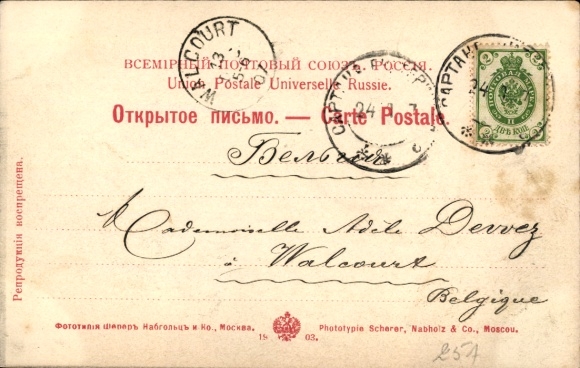 WALCOURT
ВСЕМІРНЫЙ ПОЧТОВЫЙ СОЮЗЪ. РОССІЯ.
Union Postale Universelle Russie.
Открытое письмо. — Carte Postale.
САРТАНА
24
САРТАНА
24
2
2
ДВѢ КОП.
Бельгія
Mademoiselle Adèle Devvez
à Walcourt
Belgique
Репродукція воспрещена.
Фототипія Шереръ Набгольцъ и Ко., Москва.
1903.
Phototypie Scherer, Nabholz & Co., Moscou.
254